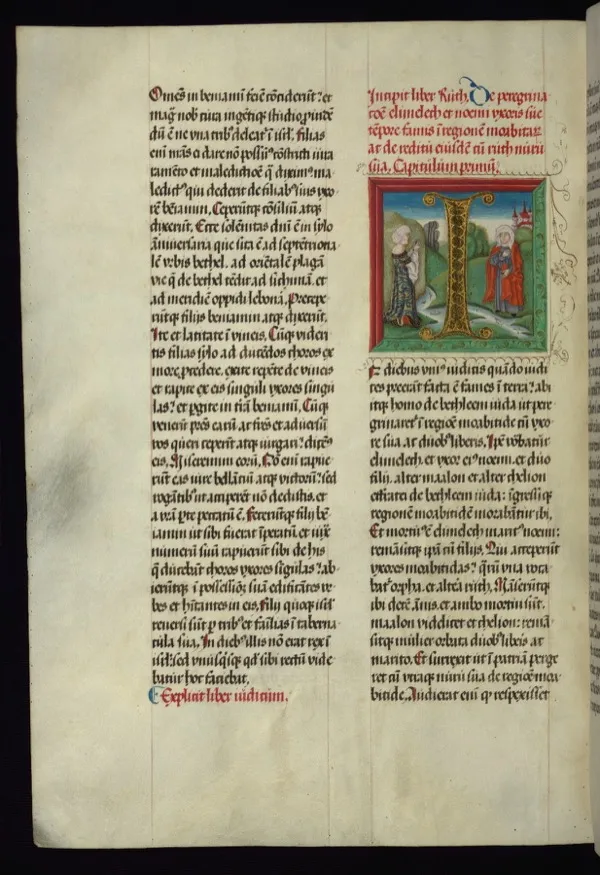 Om̄s in beniamī fcīē cōciderūt? et
magͣ nob̾ cura ingētiq̄ studio p̄uidē
dū ē ne vna trib̾ deleat̾ ī isrl̄. filias
em̄ nr̄as ei dare nō possum̾
ledict̾ qui dederit de filiab̾ suis vxo
rē beiamin. Ceperūtq̄ cōsiliū atq̄
dixerūt. Ecce solēnitas dn̄i ē in sylo
ānniversaria que sita ē ad septētriona
lē vrbis bethel. ad oriētalē plagā
vie q̄ de bethel tēdit ad sichimā. et
ad meridiē oppidi lebonā. Precepe
rūtq̄ filijs beniamin atq̄ dixerūt.
Ite et latitate ī vineis. Cūq̄ videri
tis filias sylo ad ducēdos choros ex
more procedere. exite repēte de vineis
et rapite ex eis singuli vxores singu
las? et p̄gite in trā beniamī. Cūq̄
venerīt pr̄es earū ac fr̄es et adversū
vos queri ceperīt atq̄ iurgari? dicem̾
eis. Miseremini eorū. Nō em̄ rapue
rūt eas iure bellātiū atq̄ victorū? sed
rogātib̾ ut acciperēt nō dedistis. et
a vrā pte peccatū ē. Fecerūtq̄ filij bē
iamin ut sibi fuerat īperatū et iux̄
numerū suū rapuerūt sibi de his
q̄ ducebāt choros vxores sīgulas? ab
ierūtq̄ ī possessiōē suā edificātes vr
bes et hītantes in eis. filij quoq̄ isrl̄
reversi sūt p trib̾ et familias ī taberna
cula sua. In dieb̾ illis nō erat rex ī
isrl̄. sed vnusq̄sq̄ qd̄ sibi rectū vide
batur hoc faciebat.
Explicit liber iudicum.
Incipit liber Ruth. De peregrina
cōē elimelech et noemi vxoris sue
tēpore famis ī regionē moabitar̄
ac de reditu eiusdē cū ruth nuru
sua. Capitulum primū.
I
N diebus vni̾ iudicis quādo iudi
ces preerāt facta ē fames ī terra? abi
itq̄ homo de bethleem iuda ut pere
grinaret̾ ī regione moabitide cū vxo
re sua ac duob̾ liberis. Ip̄e vocabat̾
elimelech. et vxor ei̾ noemi. et duo
filij. alter maalon et alter chelion
effratei de bethleem iuda? īgressiq̄
regionē moabitidē morabātur ibi.
Et mortu̾ ē elimelech marit̾ noemi?
remāsitq̄ ip̄a cū filijs. Qui acceperūt
vxores moabitidas? q̄rū vna voca
bat̾ orpha. et altera ruth. Māserūtq̄
ibi decē ānis. et ambo mortui sūt.
maalon videlicet et chelion? remā
sitq̄ mulier orbata duob̾ liberis ac
marito. Et surrexit ut ī patriā perge
ret cū vtraq̄ nuru sua de regiōe moa
bitide. Audierat em̄ qͥ respexisset